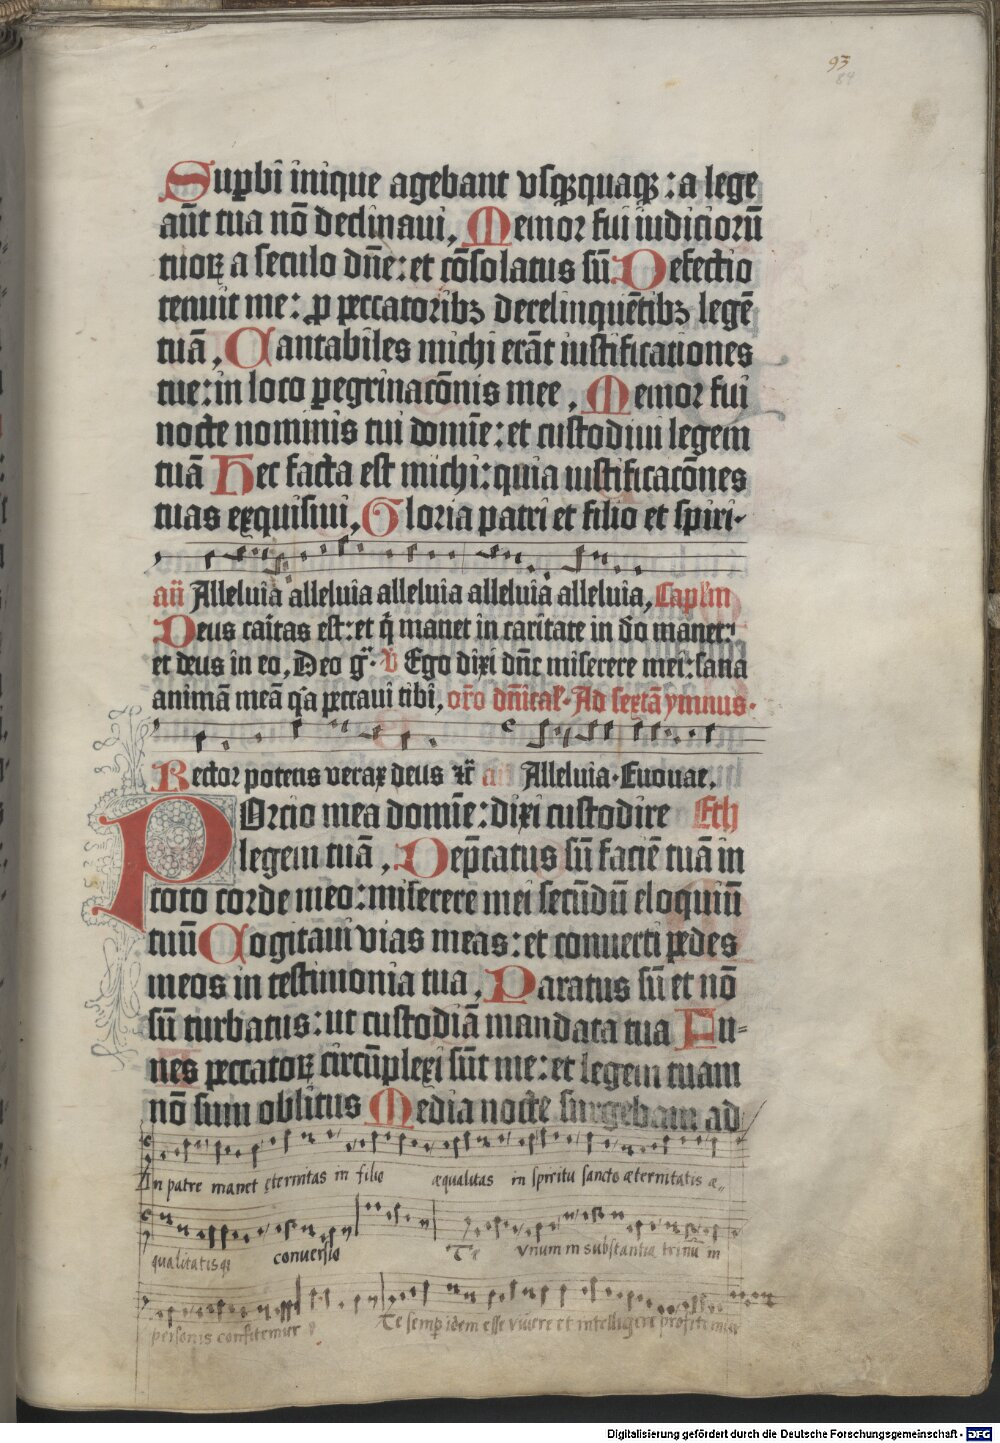 93
84
Supbi inique agebant vsqꝫquaqꝫ : a lege
aūt tua nō declinaui, Memor fui iudiciorū
tuoꝝ a seculo dn̄e: et cōsolatus sū Defectio
tenuit me: ꝓ peccatoribꝫ derelinquētibꝫ legē
tuā, Cantabiles michi erāt iustificationes
tue: in loco pegrinacōnis mee, Memor fui
nocte nominis tui domīe: et custodiui legem
tuā Hec facta est michi: quia iustificacōnes
tuas exquisiui, Gloria patri et filio et spiri-
añ Alleluia alleluia alleluia alleluia alleluia, Caplm
Deus caritas est: et q̄ manet in caritate in do manet:
et deus in eo, Deo g̃. V Ego dixi dn̄e miserere mei: sana
animā meā q̄a peccaui tibi, or̄o dn̄ical. Ad sextā ymnus.
Rector potens verax deus ꝛc̄ añ Alleluia. Euouae.
POrcio mea domīe: dixi custodire Eth
legem tuā, Dep̄catus sū faciē tuā in
toto corde meo: miserere mei secūdū eloquiū
tuū Cogitaui vias meas: et conuerti pedes
meos in testimonia tua, Paratus sū et nō
sū turbatus: ut custodiā mandata tua Fu-
nes peccatoꝝ circūplexi sūt me: et legem tuam
nō sum oblitus Media nocte surgebam ad
In patre manet ęternitas in filio æqualitas in spiritu sancto æternitatis æ-
qualitatisqꝫ conuersio Te vnum in substantia trinū in
personis confitemur Te semp idem esse viuere et intelligere profitemur
Digitalisierung gefördert durch die Deutsche Forschungsgemeinschaft - DFG